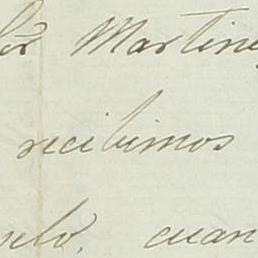 Martine
recibimos
cuan